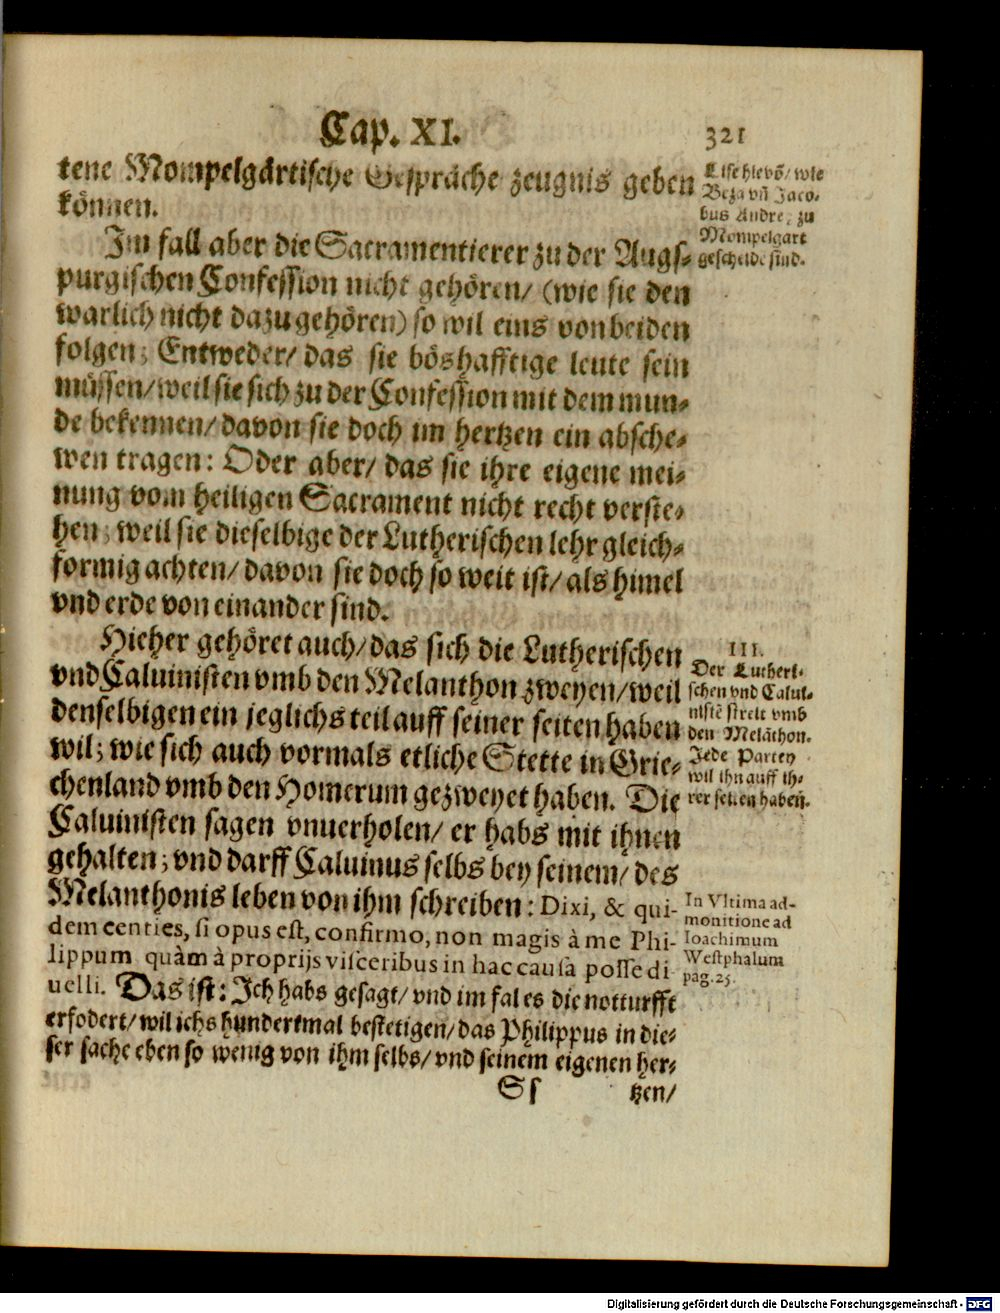 Cap. XI. 321
tene Mompelgårtische Gespräche zeugnis geben
können.
Im fall aber die Sacramentierer zu der Augs-
purgischen Confession nicht gehören/ (wie sie den
warlich nicht dazu gehören) so wil eins von beiden
folgen; Entweder/ das sie böshafftige leute sein
müssen/ weil sie sich zu der Confession mit dem mun-
de bekennen/ davon sie doch im hertzen ein absche-
wen tragen: Oder aber/ das sie ihre eigene mei-
nung vom heiligen Sacrament nicht recht verste-
hen; weil sie dieselbige der Lutherischen lehr gleich-
formig achten/ davon sie doch so weit ist/ als himel
vnd erde von einander sind.
Hieher gehöret auch/ das sich die Lutherischen
vnd Caluinisten vmb den Melanthon zweyen/ weil
denselbigen ein jeglichs teil auff seiner seiten haben
wil; wie sich auch vormals etliche Stette in Grie-
chenland vmb den Homerum gezweyet haben. Die
Caluinisten sagen vnuerholen/ er habs mit ihnen
gehalten; vnd darff Caluinus selbs bey seinem/ des
Melanthonis leben von ihm schreiben: Dixi, & qui-
dem centies, si opus est, confirmo, non magis à me Phi-
lippum quàm à proprijs visceribus in hac causa posse di
uelli. Das ist: Ich habs gesagt/ vnd im fal es die notturfft
erfodert/ wil ichs hundertmal bestetigen/ das Philippus in die-
ser sache eben so wenig von ihm selbs/ vnd seinem eigenen her-
Ss tzen/
Lise hievõ/ wie
Beza vñ Jaco-
bus Andre, zu
Mompelgart
gescheidē sind.
III.
Der Lutheri-
schen vnd Calui-
nistē streit vmb
den Melāthon.
Jede Partey
wil ihn auff ih-
rer seiten haben.
In Vltima ad-
monitione ad
Ioachimum
Westphalum
pag. 25.
Digitalisierung gefördert durch die Deutsche Forschungsgemeinschaft - DFG